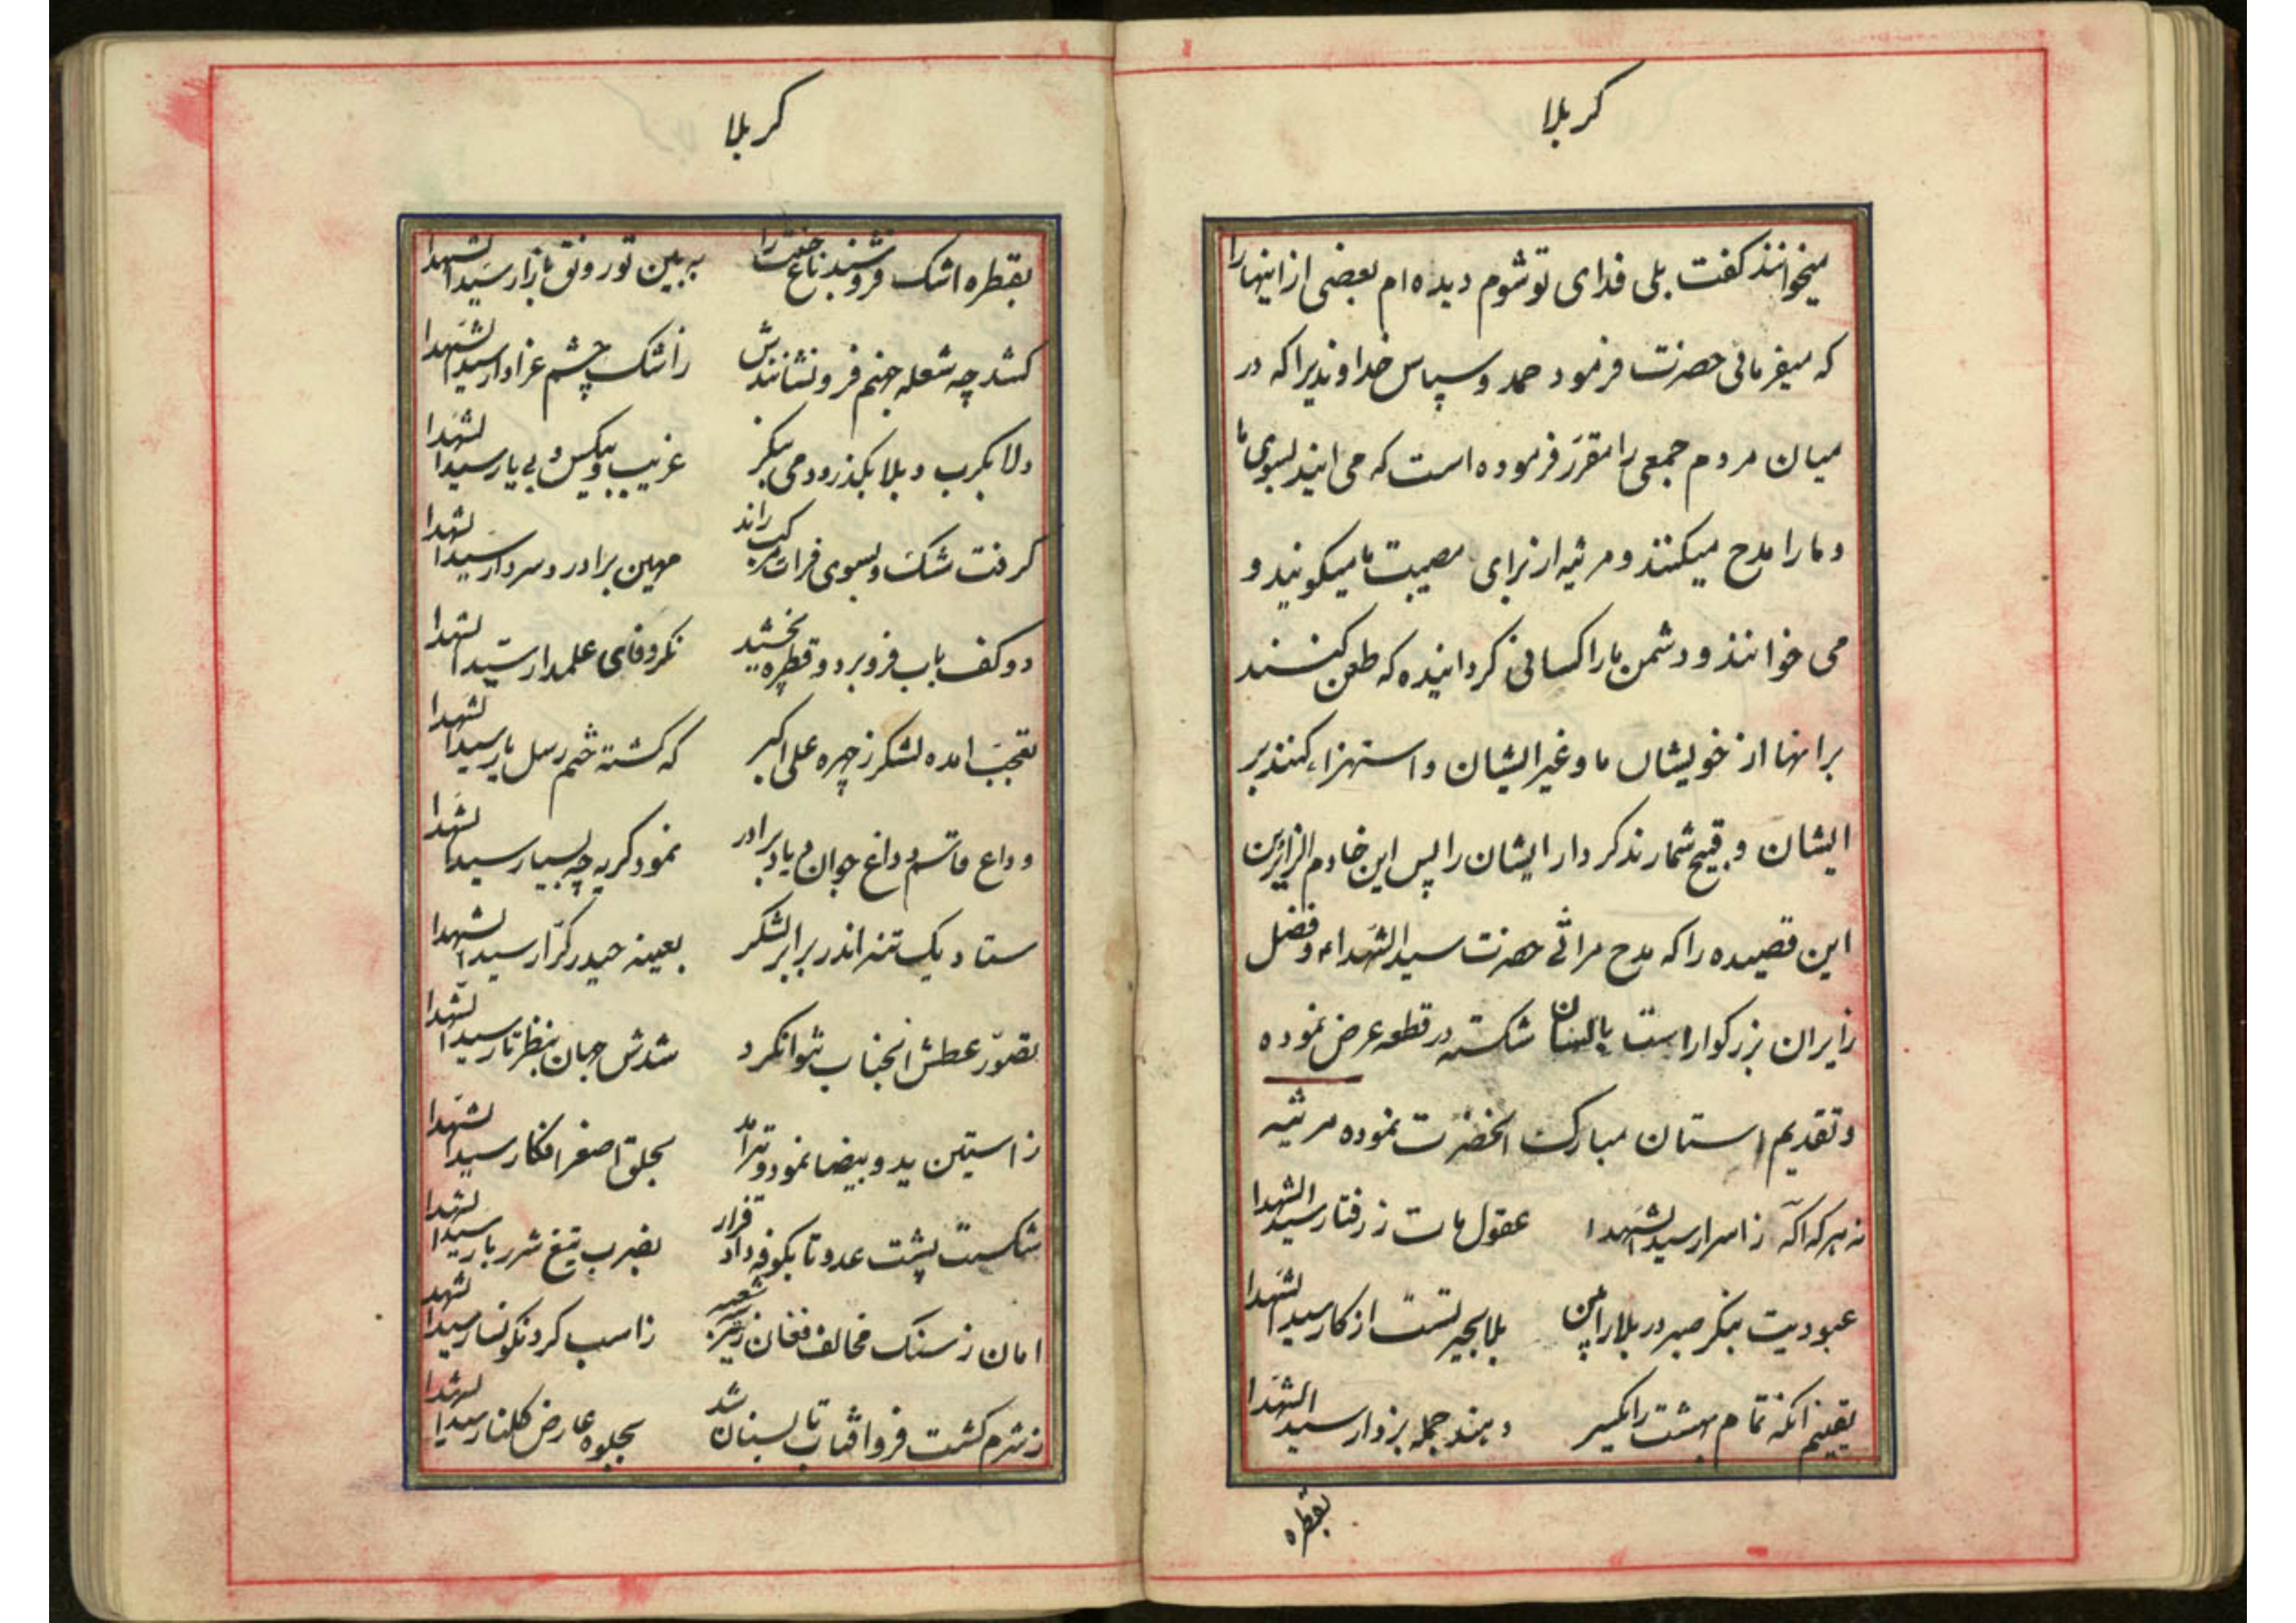 کربلا
میخوانند کفت بلی فدای تو شوم دیده ام بعضی از اینها را
که میفرمائی حضرت فرمود حمد و سپاس خداوندیرا که در
میان مردم جمعی را مقرر فرموده است که می ایند بسوی ما
و ما را مدح میکنند و مرثیه از برای مصیبت ما میکویند و
می خوانند و دشمن ما را کسانی کردانیده که طعن کنند
بر انها از خویشان ما و غیر ایشان و استهزاء کنند بر
ایشان و قبیح شمارند کردار ایشان را پس این خادم الزایرین
این قصیده را که مدح مراثی حضرت سید الشهداء و فضل
زایران بزرکوار است بالسان شکسته در قطعه عرض نموده
و تقدیم استان مبارک انحضرت نموده مرثیه
نه هر که اکه ز اسرار سید الشهدا عقول مات ز رفتار سید الشهدا
عبودیت بنکر صبر در بلا را بین بلا بحیرتست از کار سید الشهدا
یقینم انکه تمام بهشت را یکسر دهند جمله بزوار سید الشهدا
بقطره
کربلا
بقطره اشک فروشند باغ جنت را به بین تو رونق بازار سید الشهدا
کشد چه شعله جهنم فرو نشانندش ز اشک چشم عزادار سید الشهدا
دلا بکرب و بلا بکذر و دمی بنکر غریب و بیکس و بی یار سید الشهدا
کرفت مشک و بسوی فرات مرکب راند مهین برادر و سردار سید الشهدا
دو کف باب فرو برد و قطره نچشید نکر وفای علمدار سید الشهدا
تعجب امده لشکر ز چهره علی اکبر که کشته ختم رسل یار سید الشهدا
وداع قاسم و داغ جوان و یاد برادر نمود کریه چه بسیار سید الشهدا
ستاد یک تنه اندر برابر لشکر بعینه حیدر کرار سید الشهدا
تصور عطش انجناب نتوان کرد شدش جهان بنظر تار سید الشهدا
ز استین ید و بیضا نمود و تیر امد بحلق اصغر افکار سید الشهدا
شکست پشت عدو تا بکوفه داد قرار بضرب تیغ شرر بار سید الشهدا
امان ز سنک مخالف فغان ز تیر سه شعبه ز اسب کرد نکونسار سید الشهدا
ز شرم کشت فرو افتاب تا بسنان شد بجلوه عارض کلنار سید الشهدا